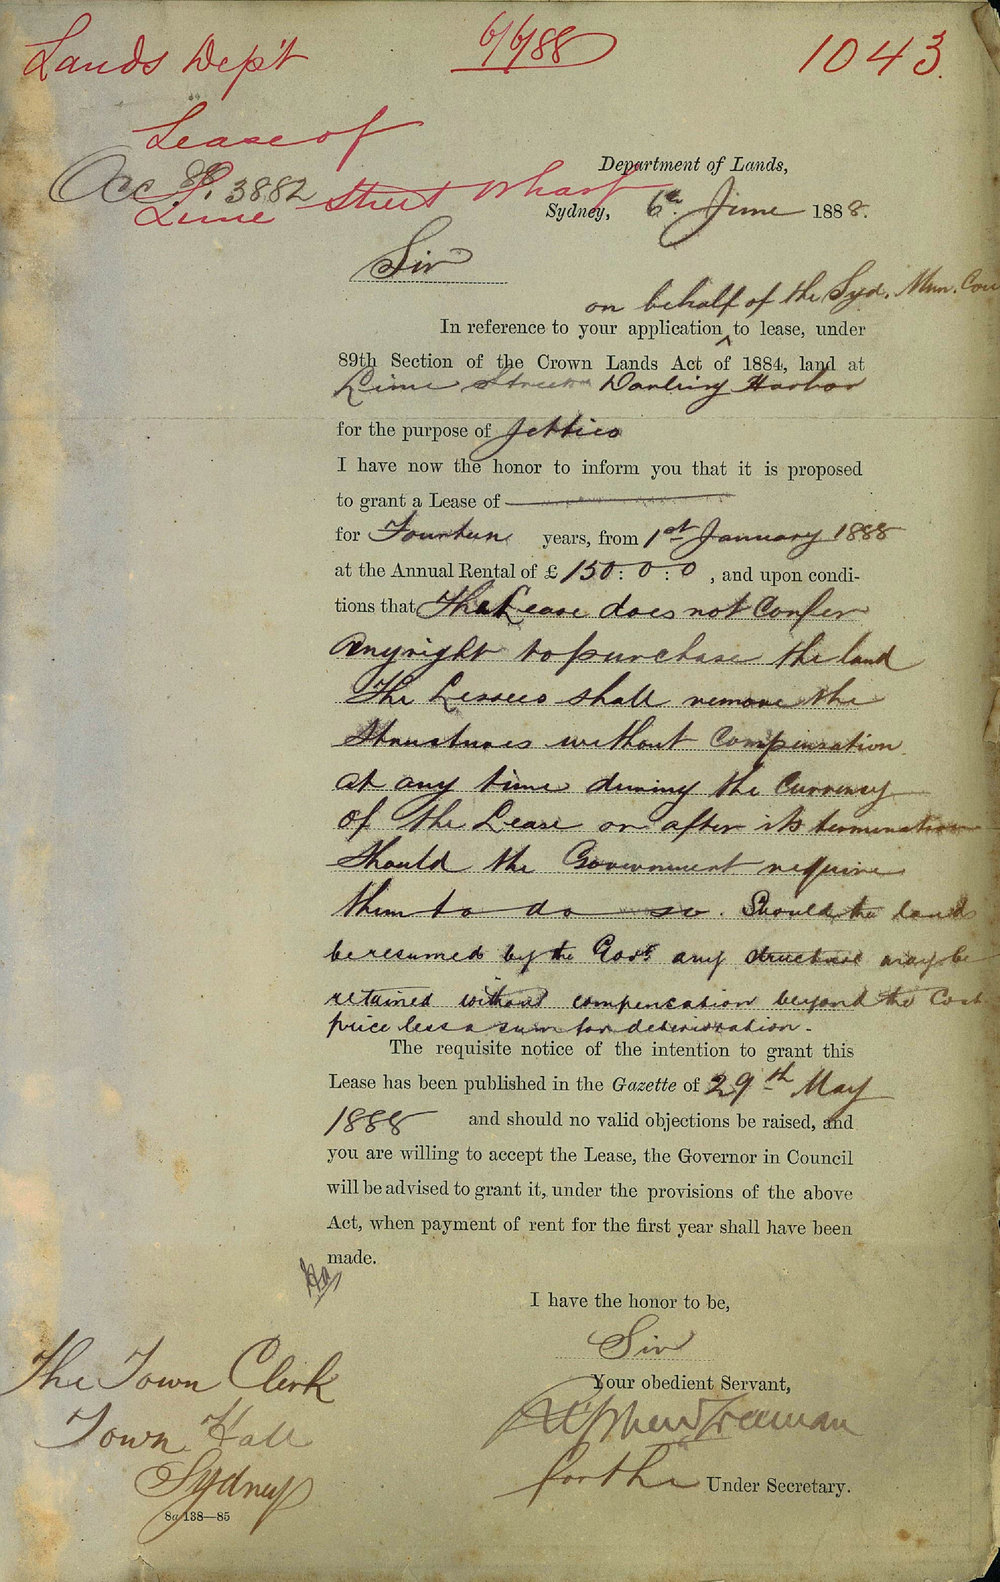 Lands Dep't 6/6/88 1043.
Lease of
Lime Street Wharf
Occ 88. 3882
Department of Lands,
Sydney, 6th June 1888.
Sir
on behalf of the Syd. Mun. Cou
In reference to your application ^ to lease, under
89th Section of the Crown Lands Act of 1884, land at
Lime Street Darling Harbor
for the purpose of Jetties
I have now the honor to inform you that it is proposed
to grant a Lease of
for Fourteen years, from 1st January 1888
at the Annual Rental of £ 150 : 0 : 0 , and upon condi-
tions that The Lease does not Confer
any right to purchase the land
The Lessees shall remove the
Structures without Compensation
at any time during the Currency
of the Lease or after its termination
should the Government require
them to do so. Should the land
be resumed by the Govt. any structure may be
retained without compensation beyond the Cost
price less a sum for deterioration.
The requisite notice of the intention to grant this
Lease has been published in the Gazette of 29th May
1888 and should no valid objections be raised, and
you are willing to accept the Lease, the Governor in Council
will be advised to grant it, under the provisions of the above
Act, when payment of rent for the first year shall have been
made.
I have the honor to be,
Sir
Your obedient Servant,
Stephen Freeman
for the Under Secretary.
The Town Clerk
Town Hall
Sydney
8a 138—85